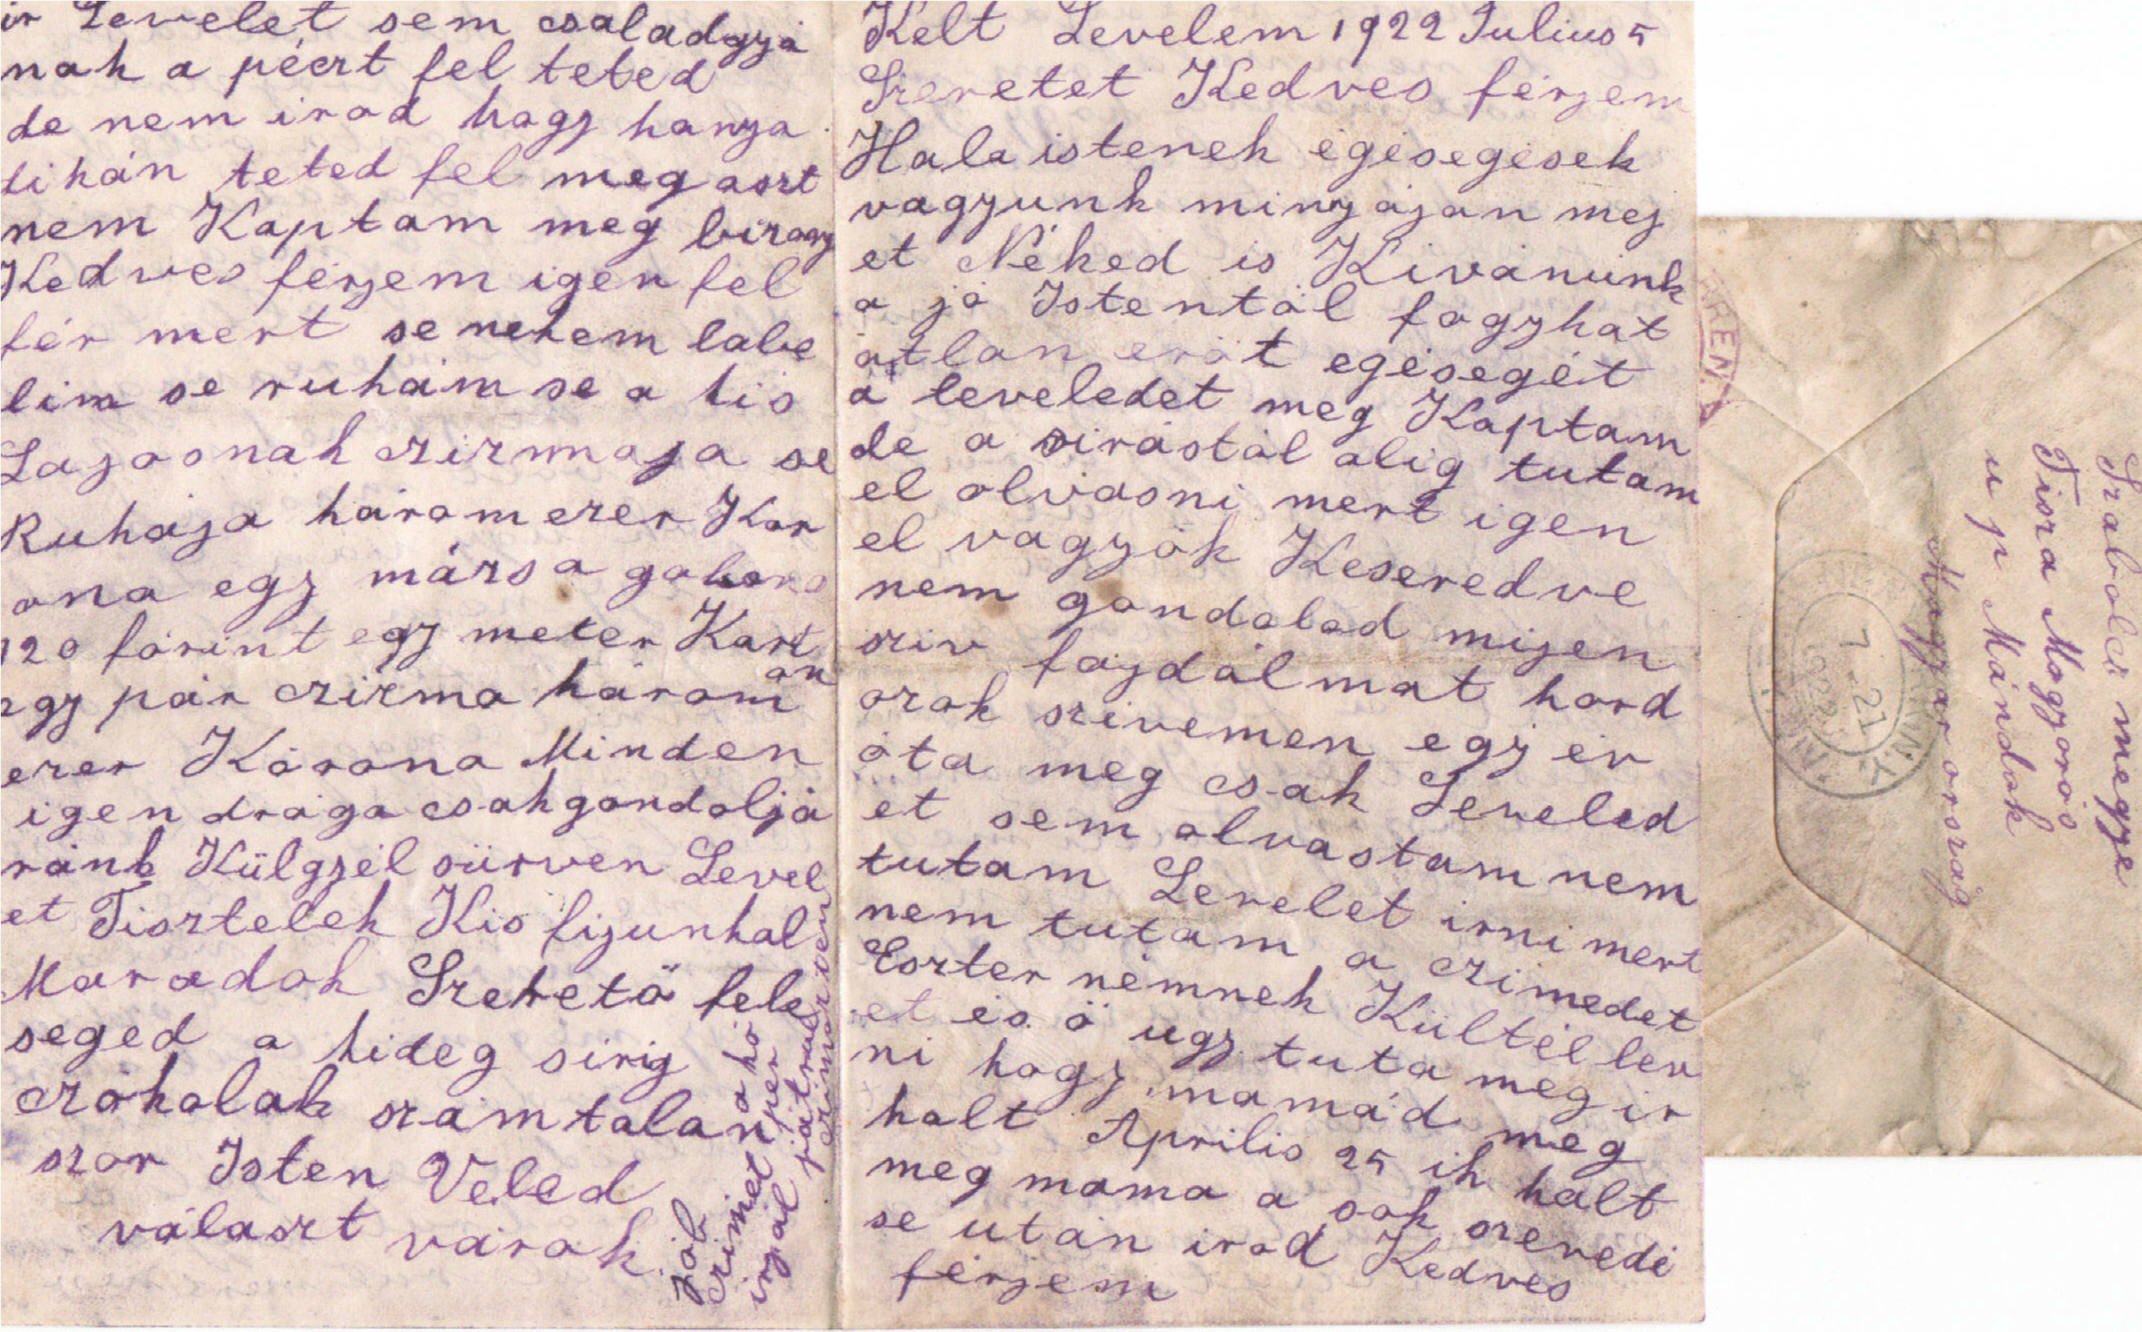 Kelt Levelem 1922 Julius 5
Szeretet Kedves férjem
Hala istenek egésegések
vagyunk minyájan mej
et Néked is Kivanunk
a jó Istentöl fogyhat
atlan eröt egéségét
a leveledet meg Kaptam
de a sirástol alig tutam
el olvasni mert igen
el vagyok Keseredve
nem gondolod mijen
sziv fajdálmat hord
ozok szivemen egy év
óta meg csak Leveled
et sem olvastam nem
tutam Levelet irni mert
nem tutam a czimedet
Eszter némnek Kültél lev
et és ö ugy tuta meg ir
ni hogy mamád meg
halt Aprilis 25 ik halt
meg mama a sok szevedé
se után irod Kedves
férjem
ir Levelet sem családgyá
nak a péert fel teted
de nem irod hogy hanya
dikán teted fel meg aszt
nem Kaptam meg bizony
Kedves férjem igen fel
fér mert se nekem labe
lim se ruhám se a kis
Lajosnak czizmaja se
Ruhája három ezer Kor
ona egy mársa gabona
120 forint egy meter Kart
on
egy pár czizma három
ezer Korona Minden
igen draga csak gondoljá
ránk Külgyél sürven Level
et Tisztelek Kis fijunkal
Maradok Szeretö fele
seged a hideg sirig
czókolak számtalan
szor Isten Veled
választ várok
Jób a hó
czimet per
irjál játrul
czimezien
Szabolcs megye
Tisza Mogyorós
u p Mándok
Magyar ország
7 21
1922